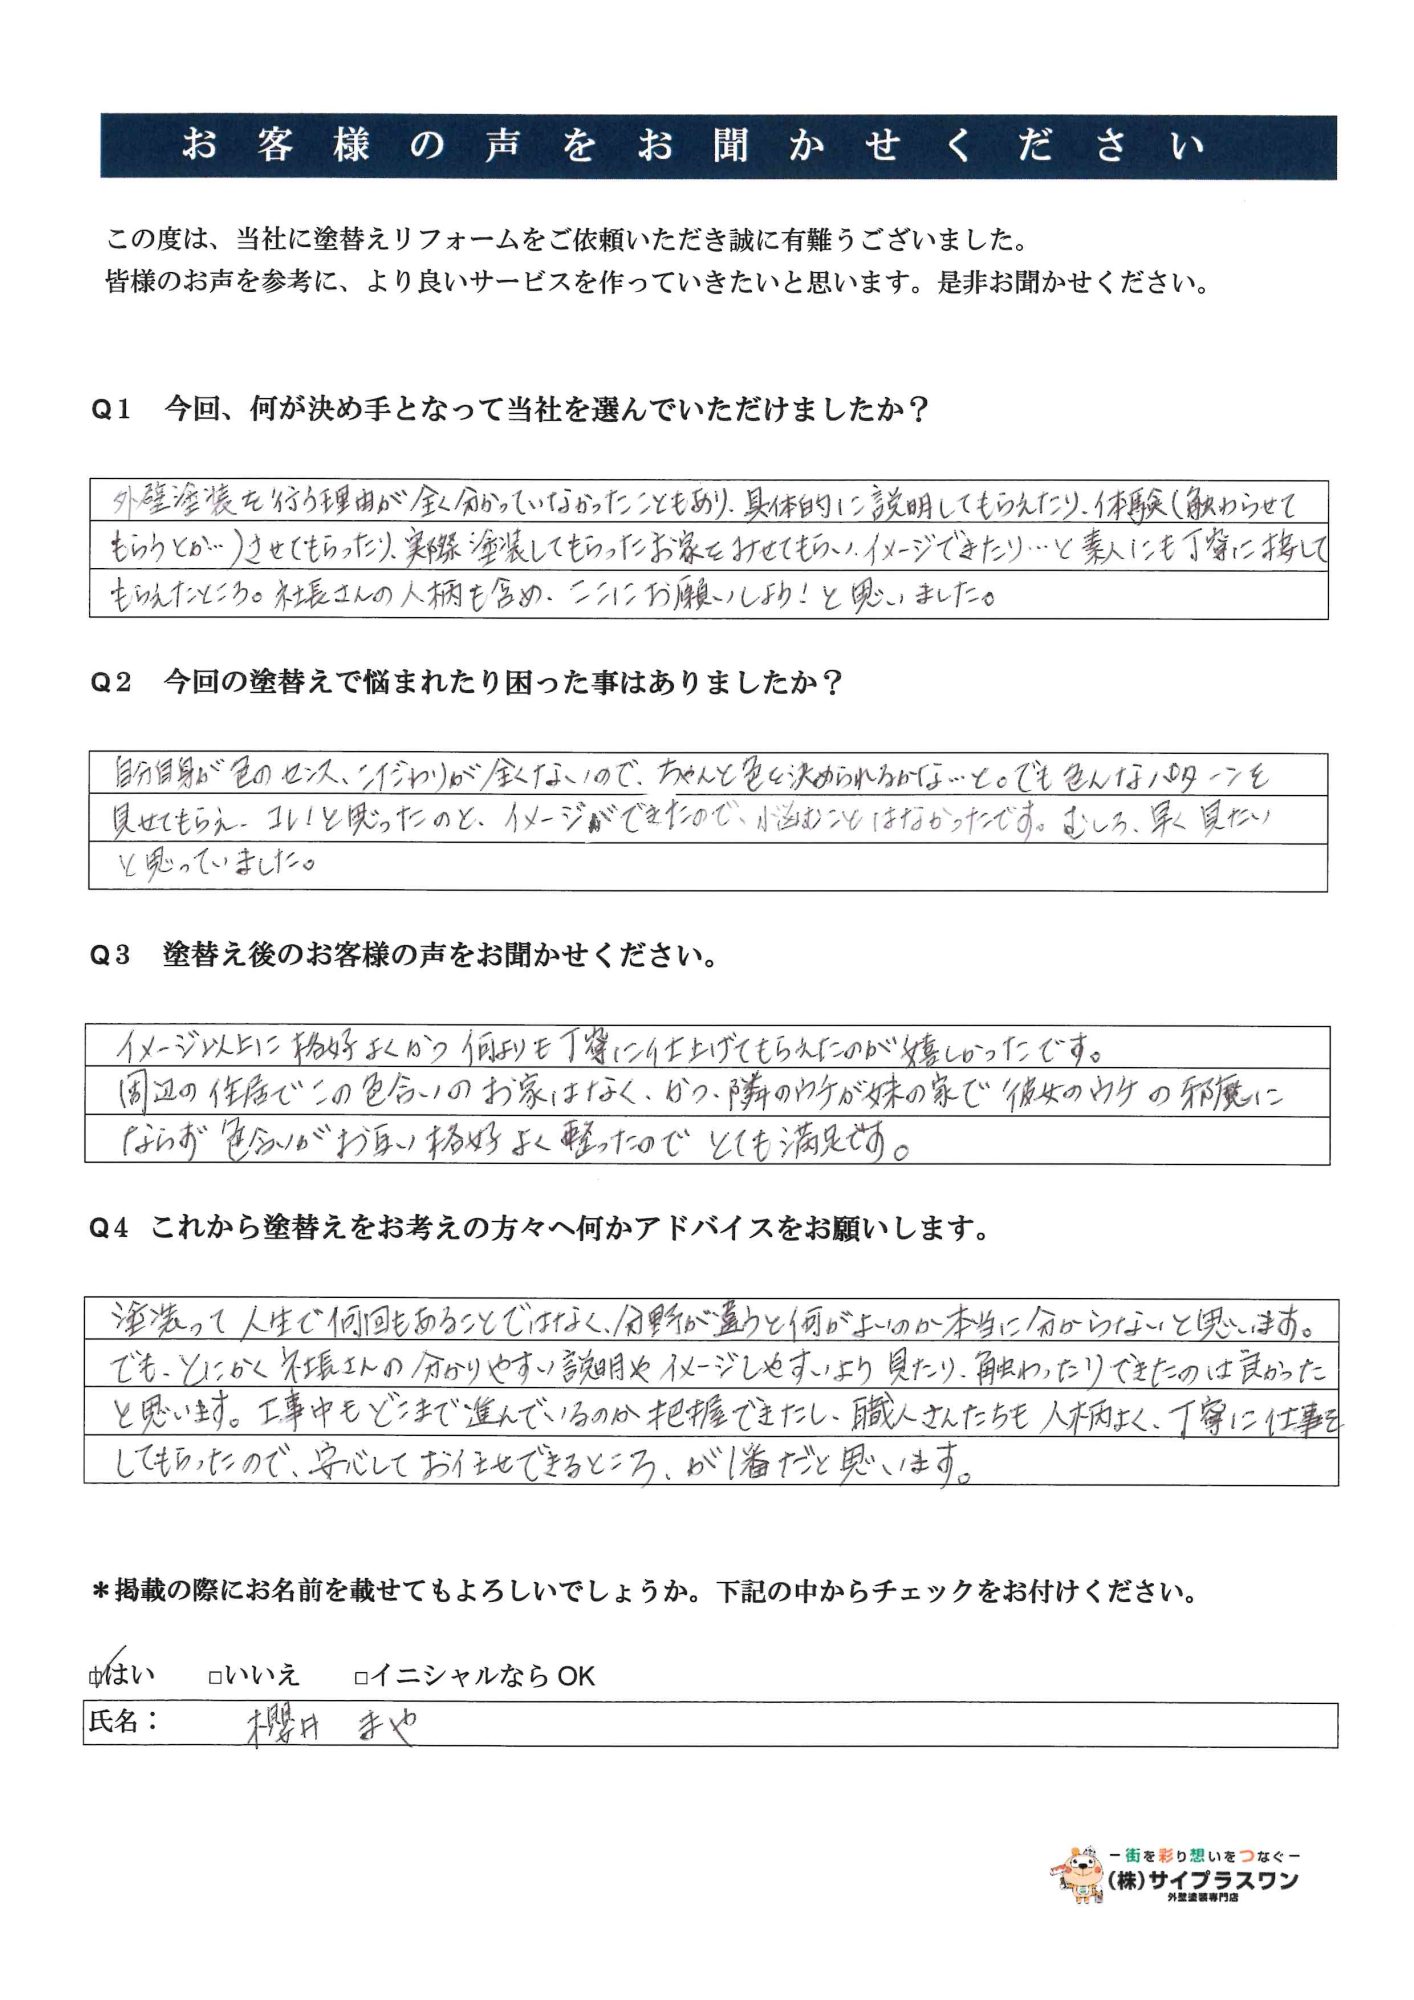 お客様の声をお聞かせください
この度は、当社に塗替えリフォームをご依頼いただき誠に有難うございました。
皆様のお声を参考に、より良いサービスを作っていきたいと思います。是非お聞かせください。
Q1 今回、何が決め手となって当社を選んでいただけましたか？
外壁塗装を行う理由が全く分かっていなかったこともあり、具体的に説明してもらえたり、体験(触わらせて
もらうとか…)させてもらったり、実際塗装してもらったお家をみせてもらい、イメージできたり…と素人にも丁寧に接して
もらえたところ。社長さんの人柄も含め、ここにお願いしよう！と思いました。
Q2 今回の塗替えで悩まれたり困った事はありましたか？
自分自身が色のセンス、こだわりが全くないので、ちゃんと色を決められるかな…と。でも色んなパターンを
見せてもらえ、コレ！と思ったのと、イメージができたので、悩むことはなかったです。むしろ、早く見たい
と思っていました。
Q3 塗替え後のお客様の声をお聞かせください。
イメージ以上に格好よくかつ何よりも丁寧に仕上げてもらえたのが嬉しかったです。
周辺の住居でこの色合いのお家はなく、かつ、隣のウチが妹の家で彼女のウチの邪魔に
ならず色合いがお互い格好よく整ったのでとても満足です。
Q4 これから塗替えをお考えの方々へ何かアドバイスをお願いします。
塗装って人生で何回もあることではなく、分野が違うと何がよいのか本当に分からないと思います。
でも、とにかく社長さんの分かりやすい説明やイメージしやすいより見たり、触わったりできたのは良かった
と思います。工事中もどこまで進んでいるのか把握できたし、職人さんたちも人柄よく、丁寧に仕事を
してもらったので、安心してお任せできるところ、が1番だと思います。
＊掲載の際にお名前を載せてもよろしいでしょうか。下記の中からチェックをお付けください。
☑はい □いいえ □イニシャルならOK
氏名： 櫻井 まや
ー街を彩り想いをつなぐー
(株)サイプラスワン
外壁塗装専門店